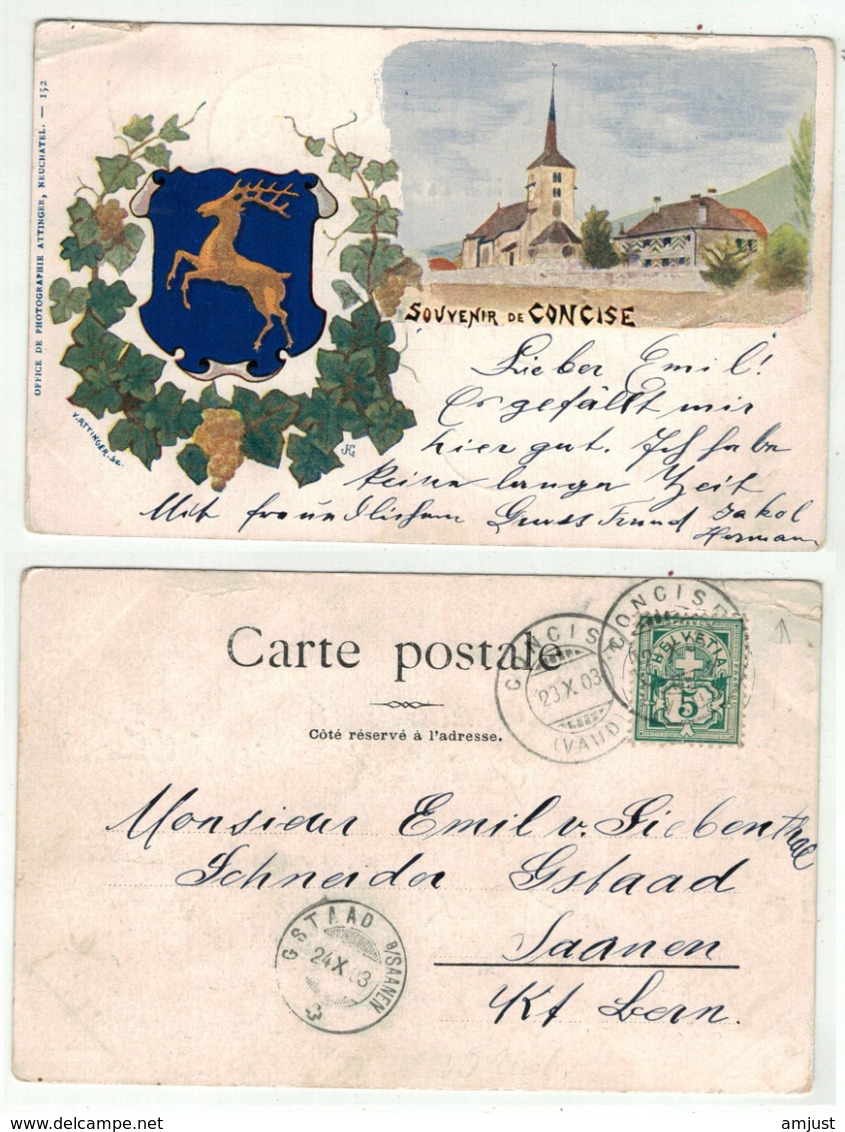 OFFICE DE PHOTOGRAPHIE ATTINGER, NEUCHATEL. — 152
V. ATTINGER. Sc.
JG
SOUVENIR DE CONCISE
Lieber Emil!
Es gefällt mir
hier gut. Ich habe
keine lange Zeit
Mit freundlichem Gruss Freund Jakob
Hermann
Carte postale
Côté réservé à l'adresse.
CONCISE
23 X 03
(VAUD)
CONCISE
FRANCO
HELVETIA
5
Monsieur Emil v. Siebenthal
Schneider Gstaad
Saanen
Kt Bern.
GSTAAD B/SAANEN
24 X 03
amjust